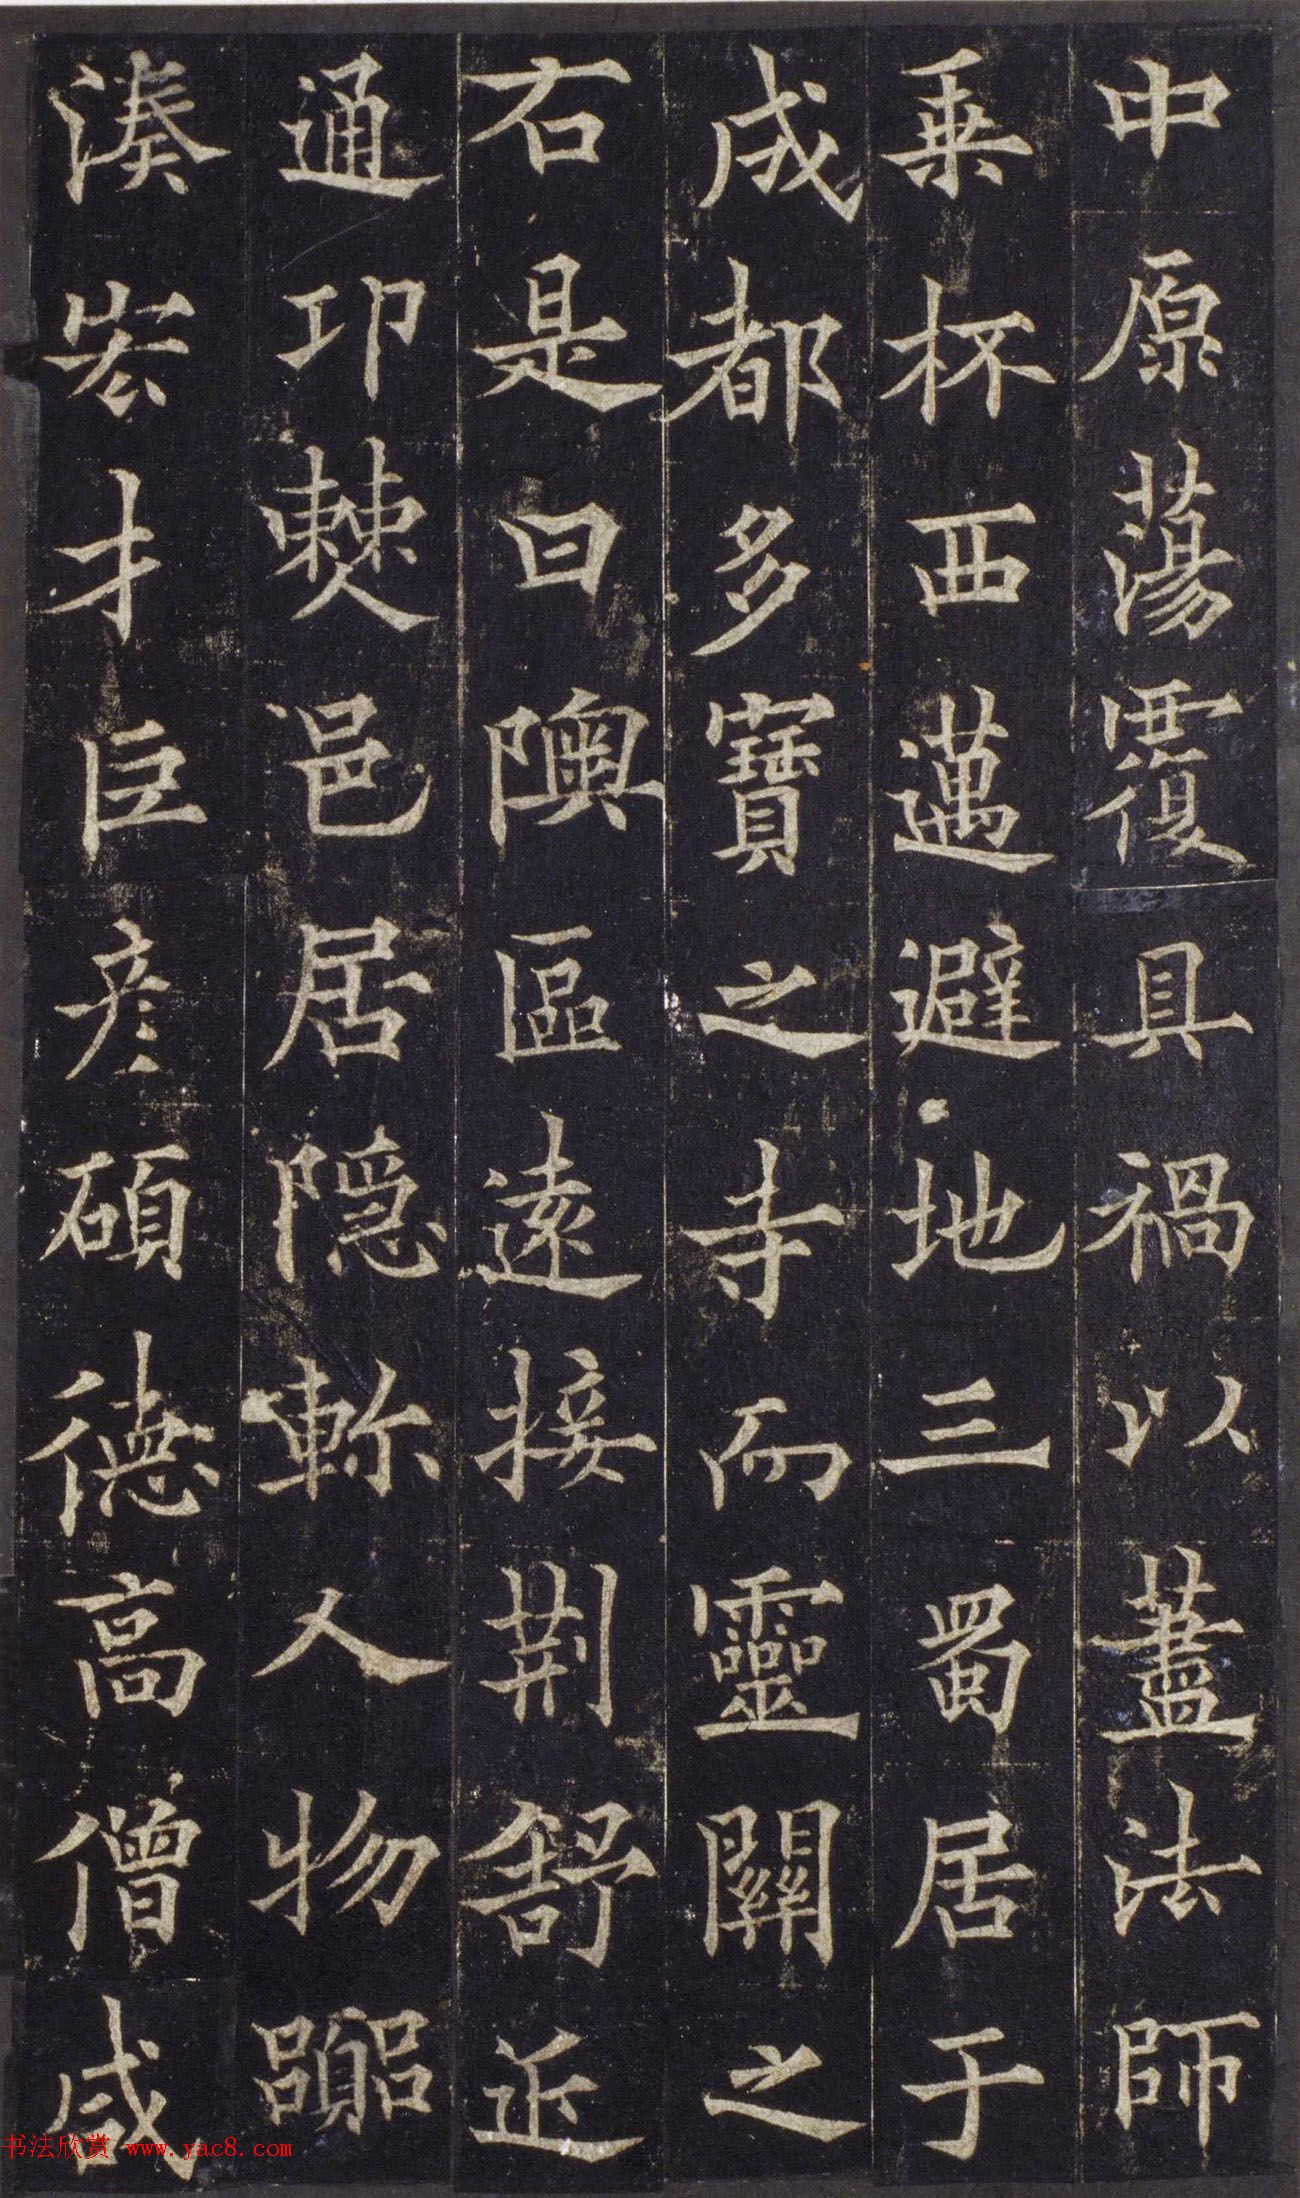 中原蕩覆具禍以藎法師
乗杯西邁避地三蜀居于
成都多寶之寺而靈關之
右是曰隩區遠接荆舒近
通邛僰邑居隐軫人物嚻
湊宏才巨彦碩德高僧咸
书法欣赏 www.yac8.com